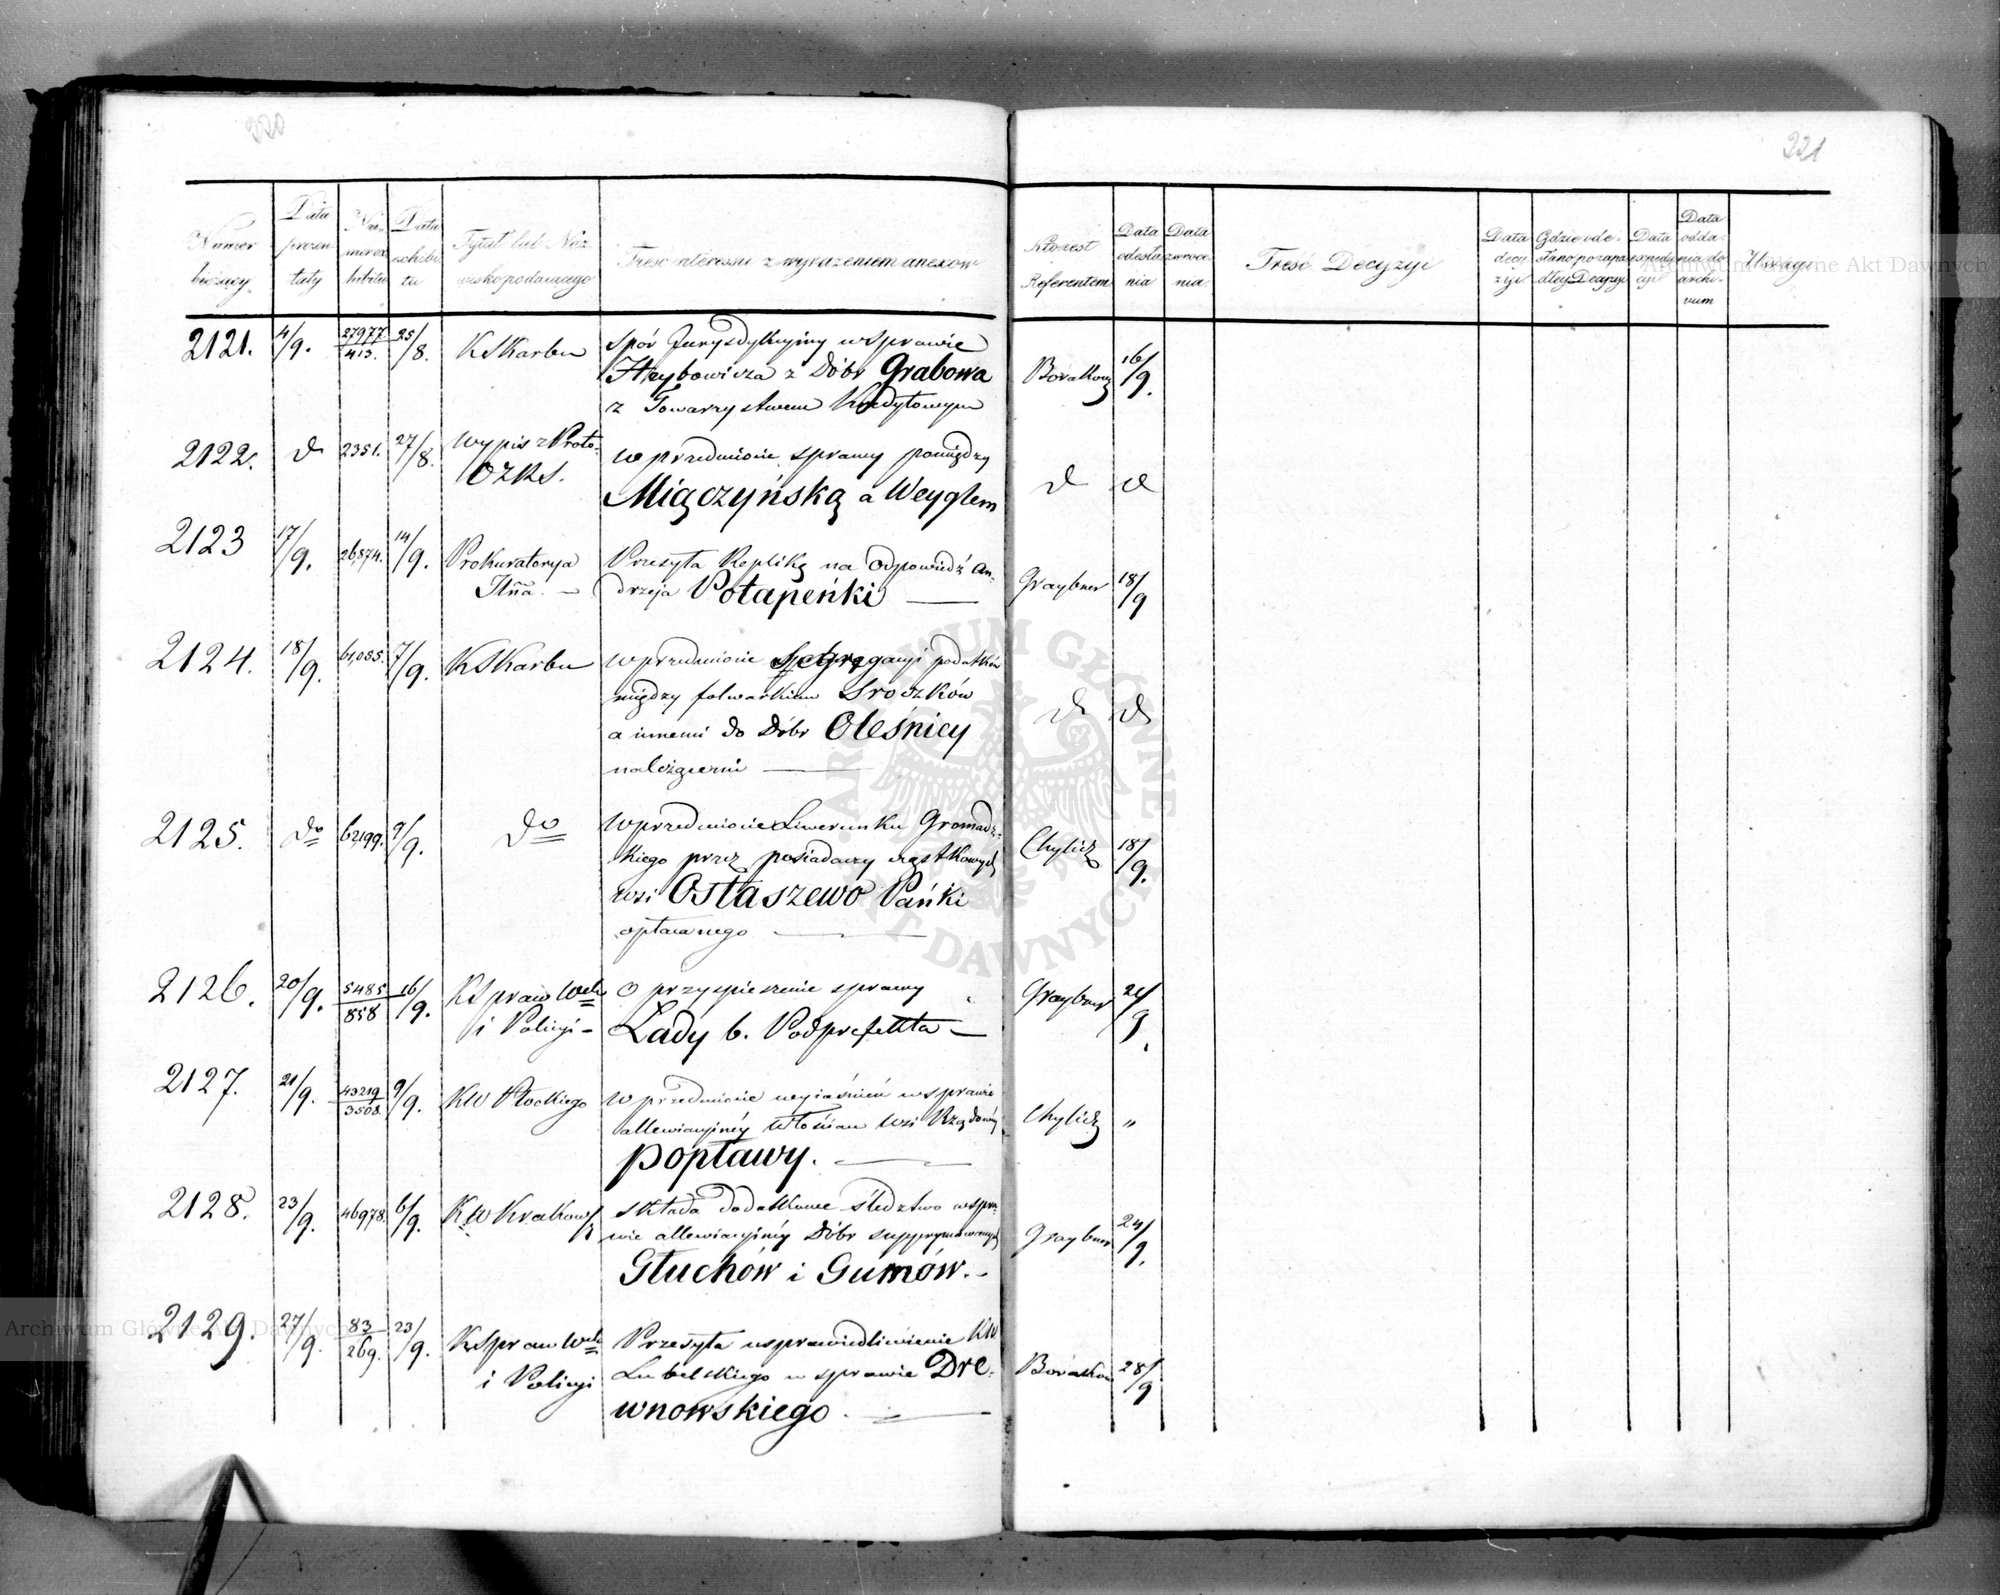 220
221
Numer bieżący
Data prezentaty
Numer exhibitu
Data exhibitu
Tytuł lub Nazwisko podaiącego
Treść interessu z wyrażeniem anexów
Kto iest Referentem
Data odesłania
Data zwrócenia
Treść Decyzyi
Data decyzyi
Gdzie odesłano po zapadłey Decyzyi
Data expedycyi
Data oddania do archivum
Uwagi
2121. 4/9. 27977/413. 25/8. K Skarbu
Spór Jurysdykcyiny w sprawie
Hrybowicza z Dóbr Grabowa
z Towarzystwem Kredytowym
16/9.
2122. d 2351. 27/8. Wypis z Proto-
OZKS.
w przedmiocie sprawy pomiędzy
Miączyńską a Weyglem
d d
2123 17/9. 26,874. 14/9. Prokuratorya
Przesyła Replikę na Odpowiedź An-
drzeja Potapeńki
Graybner 18/9
2124. 18/9. 61,085. 7/9. K Skarbu
w przedmiocie Segregacyi podatków
między folwarkiem Sroczków
a innemi do Dóbr Oleśnicy
należącemi
d d
2125. do 62199. 9/9. do
w przedmiocie Liwerunku Gromadz-
kiego przez posiadaczy cząstkowych
wsi Ostaszewo Pańki
opłacanego
Chylicz 18/9.
2126. 20/9. 5485/858 16/9. K Spraw Wch
i Policyi
O przyspieszenie sprawy
Łady b. Podprefekta
Graybner 21/9.
2127. 21/9. 43219/3508. 9/9. KW Płockiego
w przedmiocie wyiaśnień w sprawie
allewiacyiney Włościan Wsi Rządowey
Popławy.
Chylicz "
2128. 23/9. 46978. 6/9. KW Krakows
składa dodatkowe śledztwo w spra-
wie allewiacyiney Dóbr supprymowanych
Głuchów i Gumów.
Graybner 24/9.
2129. 27/9. 83/269. 23/9. K Spraw Wch
i Policyi
Przesyła usprawiedliwienie KW
Lubelskiego w sprawie Dre-
wnowskiego.
28/9
Archiwum Główne Akt Dawnych
ARCHIWUM GŁÓWNE AKT DAWNYCH
Archiwum Główne Akt Dawnych